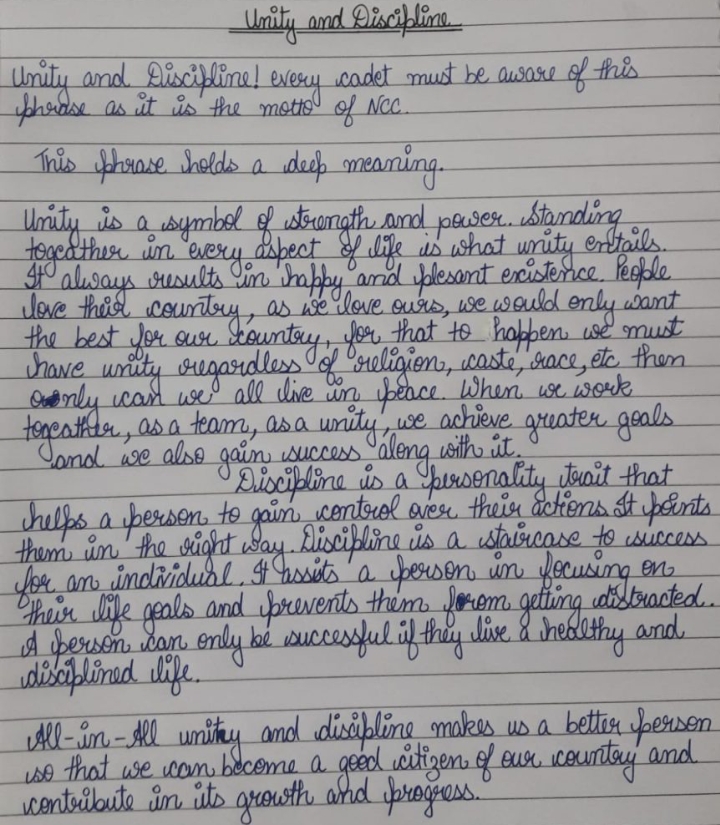 Unity and Discipline
Unity and Discipline! every cadet must be aware of this
phrase as it is the motto of NCC.
This phrase holds a deep meaning.
Unity is a symbol of strength and power. Standing
togeather in every aspect of life is what unity entails.
It always results in happy and plesant existence. People
love their country, as we love ours, we would only want
the best for our country, for that to happen we must
have unity regardless of religion, caste, race, etc then
only can we all live in peace. When we work
togeather, as a team, as a unity, we achieve greater goals
and we also gain success along with it.
Discipline is a personality trait that
helps a person to gain control over their actions. It points
them in the right way. Discipline is a staircase to success
for an individual. It assits a person in focusing on
their life goals and prevents them from getting distracted.
A person can only be successful if they live a healthy and
disciplined life.
All-in-All unity and discipline makes us a better person
so that we can become a good citizen of our country and
contribute in its growth and progress.